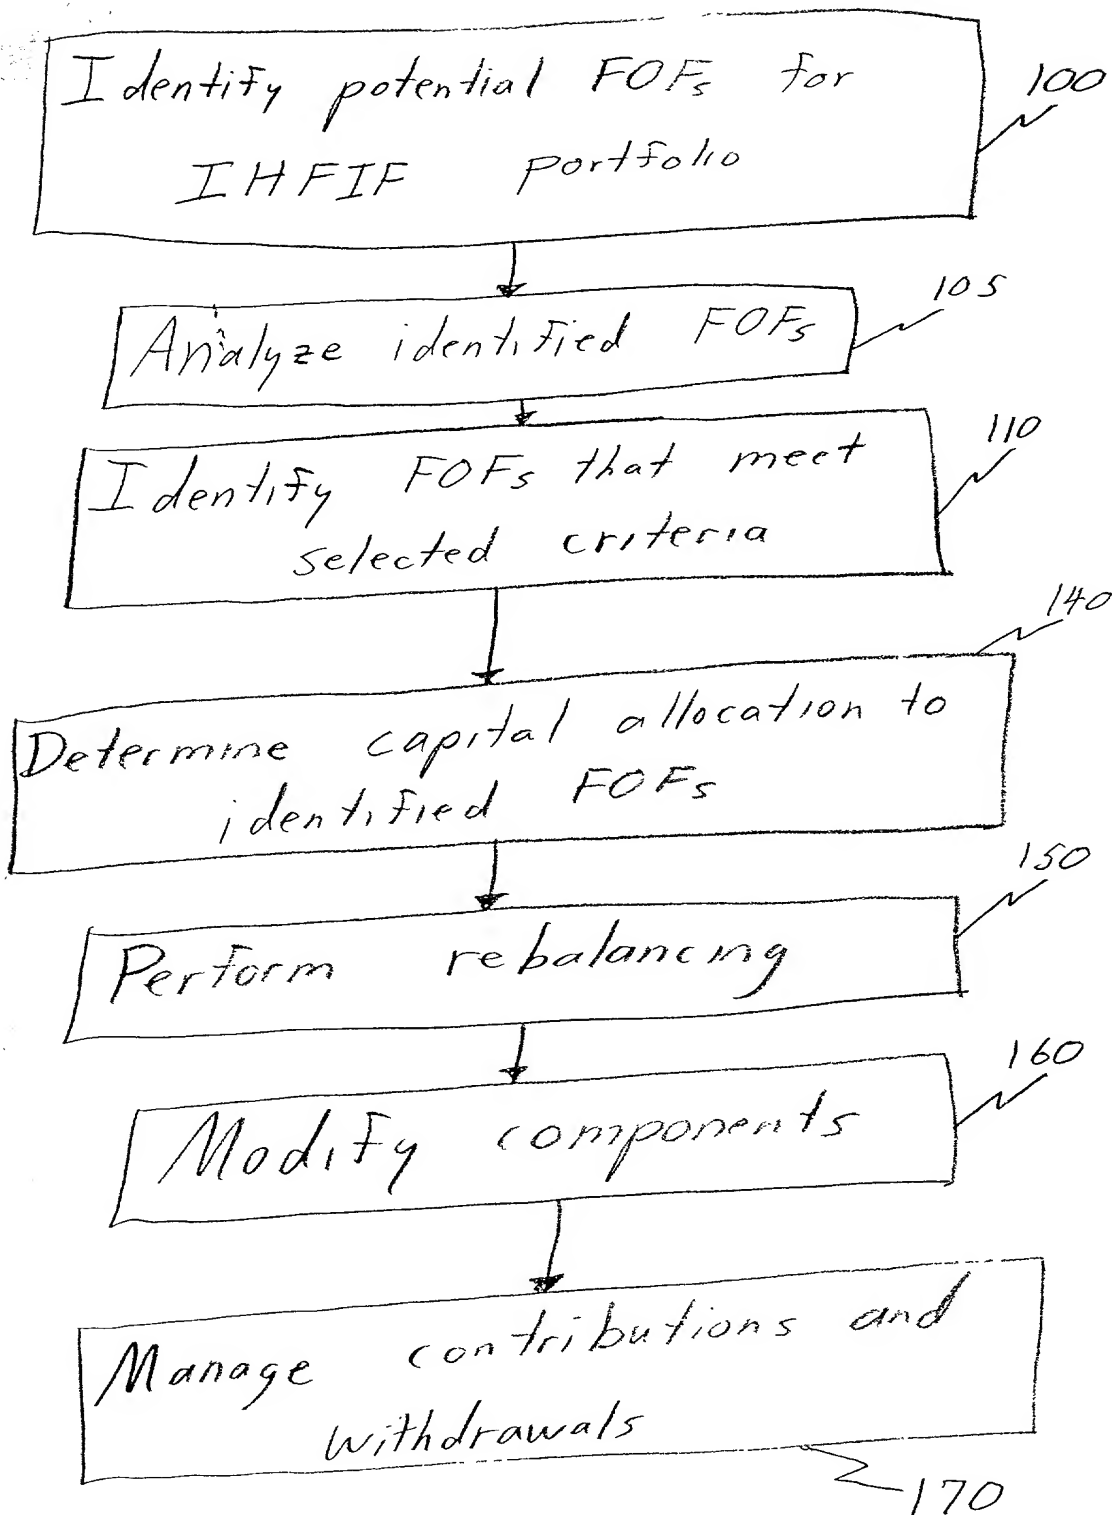 Identify potential FOFs for
100
IHFIF portfolio
105
Analyze identified FOFs
110
Identify FOFs that meet
selected criteria
140
Determine capital allocation to
identified FOFs
150
Perform rebalancing
160
Modify components
Manage contributions and
withdrawals
170